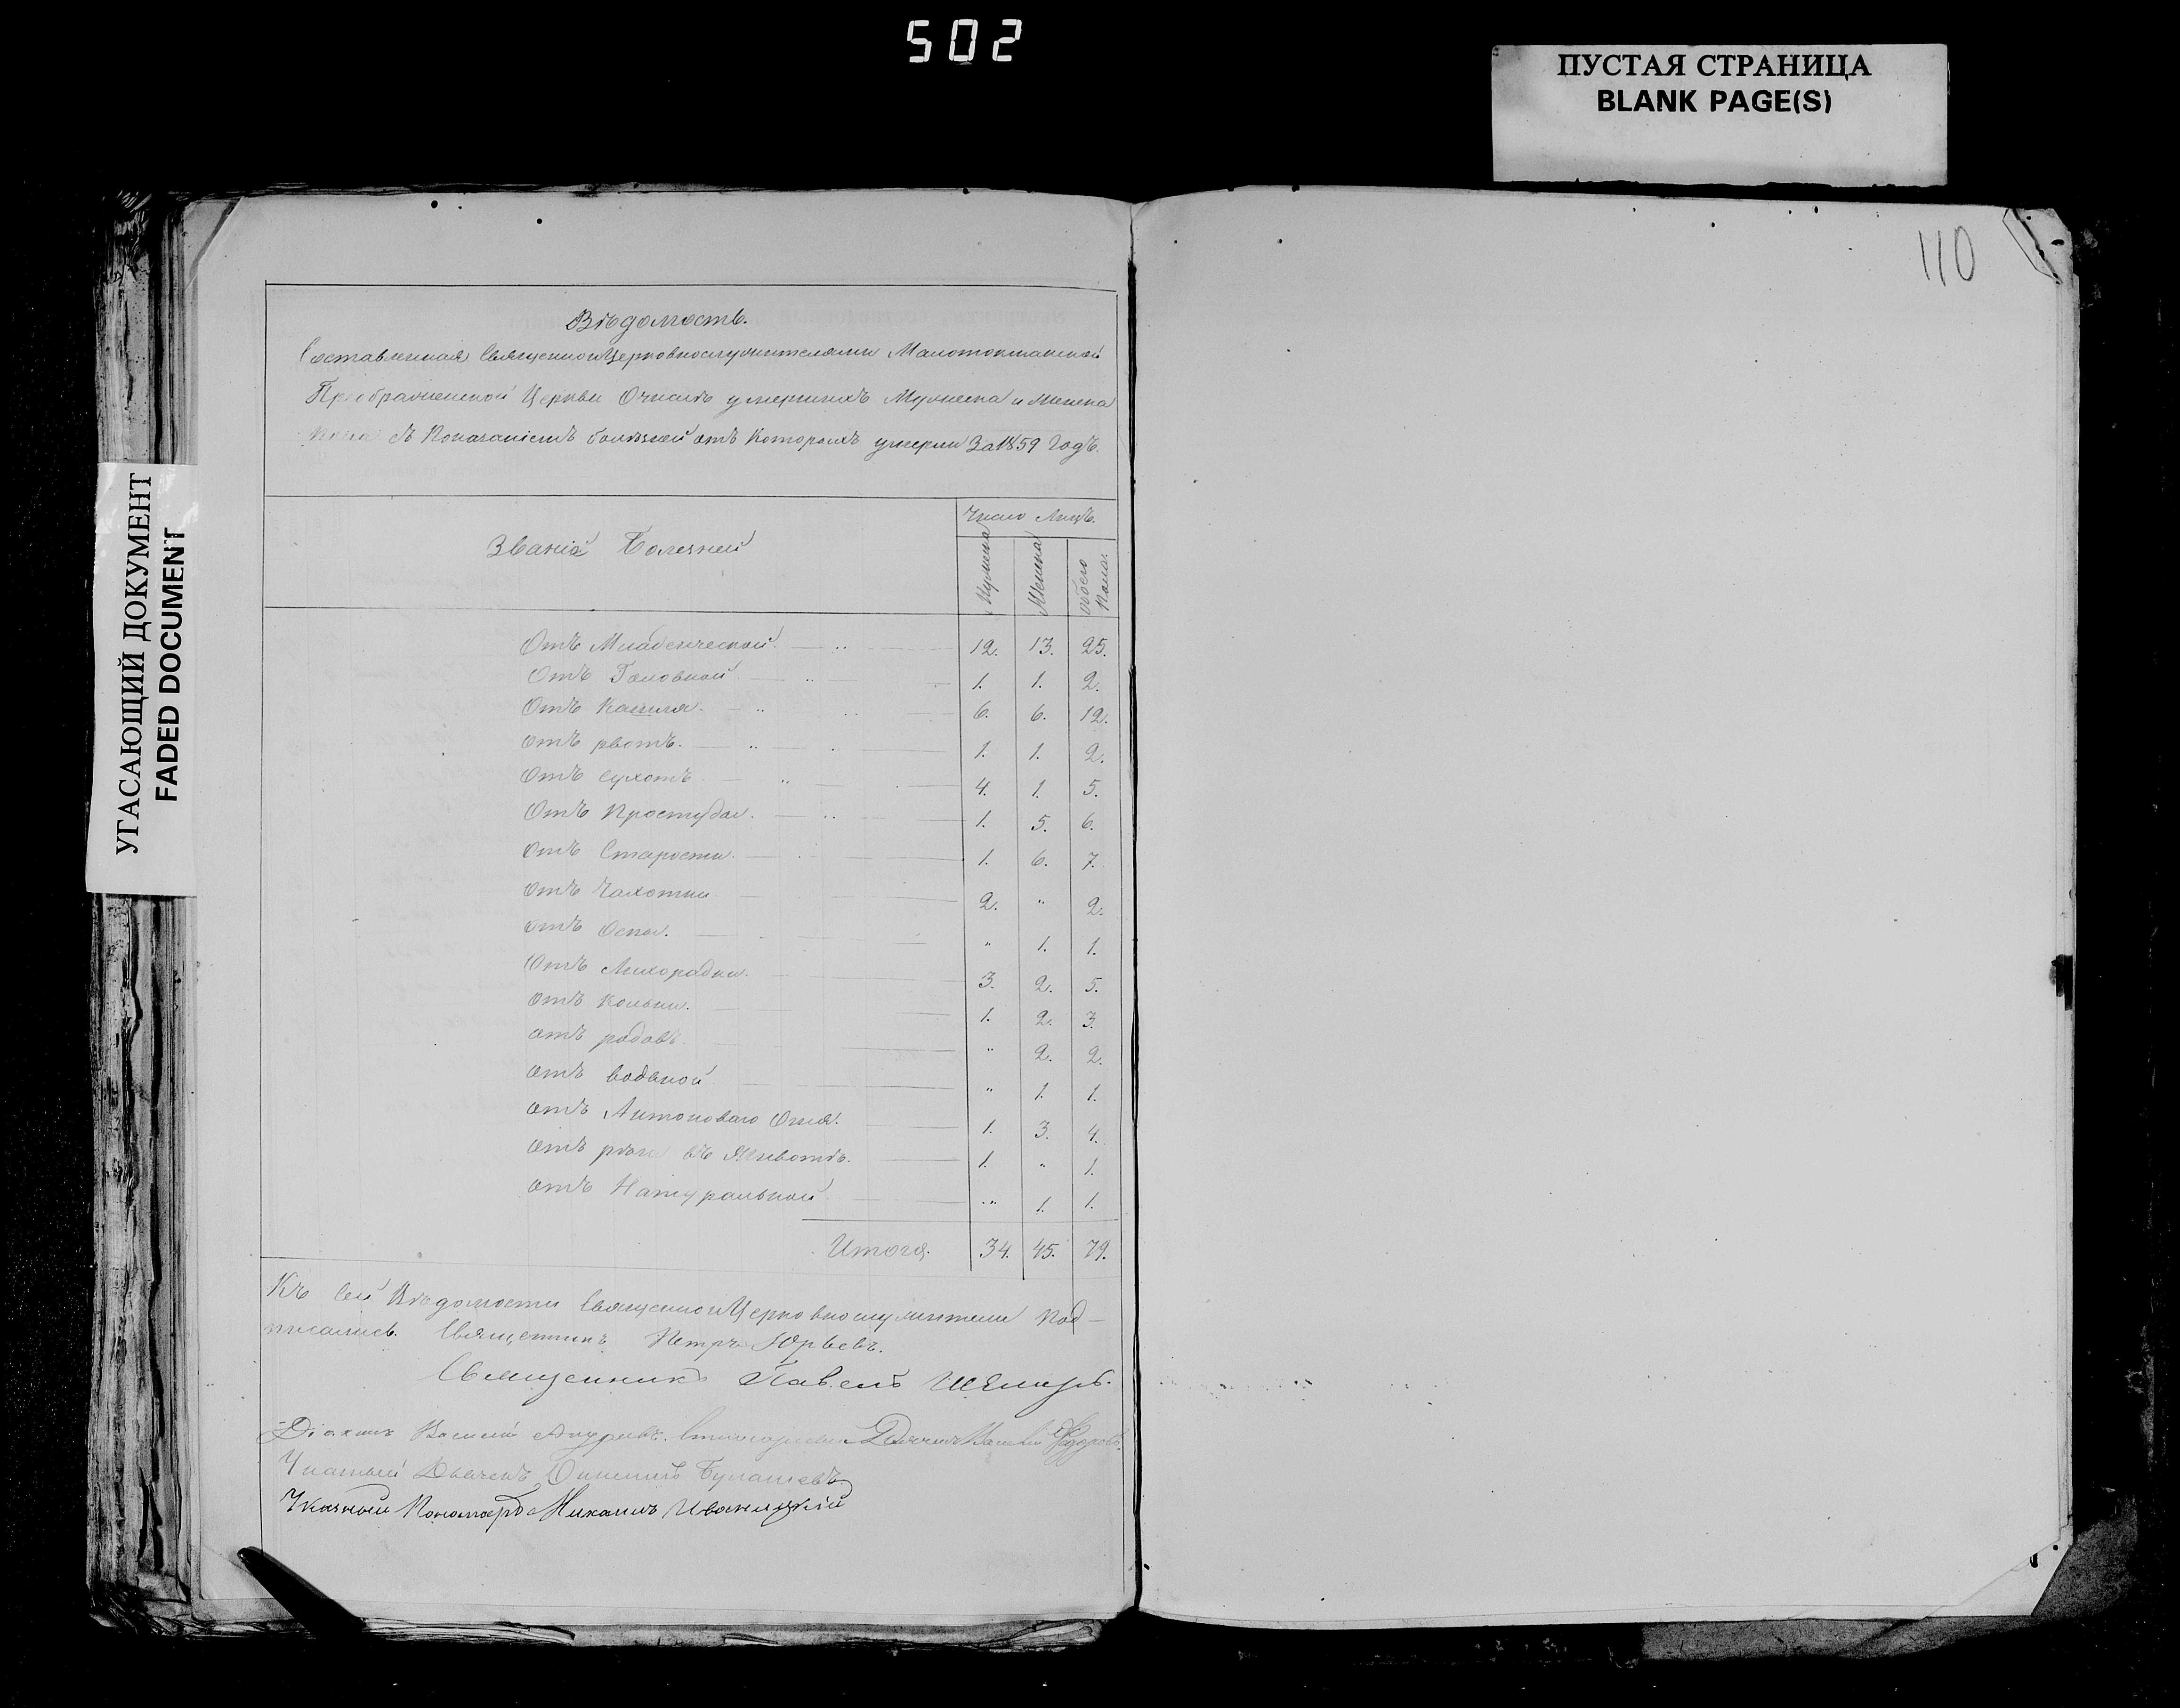 502
ПУСТАЯ СТРАНИЦА
BLANK PAGE(S)
110
УГАСАЮЩИЙ ДОКУМЕНТ
FADED DOCUMENT
Вѣдомость.
Составленная Священноицерковнослужителями
Преображенской Церкви О числѣ умершихъ Мужеска и Женска
Пола съ Показаніемъ болѣзней отъ Которыхъ умерли За 1859 Годъ.
Званіе Болезней
Число Лицъ.
Мужска
Женска
Обоего Пола.
Отъ Младенческой 12. 13. 25.
Отъ Головной 1. 1. 2.
Отъ Кашля. 6. 6. 12.
отъ рвотъ. 1. 1. 2.
Отъ Сухотъ. 4. 1. 5.
Отъ Простуды. 1. 5. 6.
отъ Старости. 1. 6. 7.
отъ Чахотки 2. " 2.
отъ Оспы. " 1. 1.
Отъ Лихорадки. 3. 2. 5.
отъ Кольки. 1. 2. 3.
отъ родовъ. " 2. 2.
отъ водяной " 1. 1.
отъ Антоноваго Огня. 1. 3. 4.
отъ рези въ Животѣ. 1. " 1.
отъ Натуральной " 1. 1.
Итого. 34. 45. 79.
Къ сей Вѣдомости Священноицерковнослужители Под-
писались. Священникъ Петръ Юрьевъ.
Священникъ Павелъ
Діаконъ Василій Дьячекъ Василій Ѳедоровъ.
Дьячекъ
Указный Пономарь Михаилъ Иваницкій